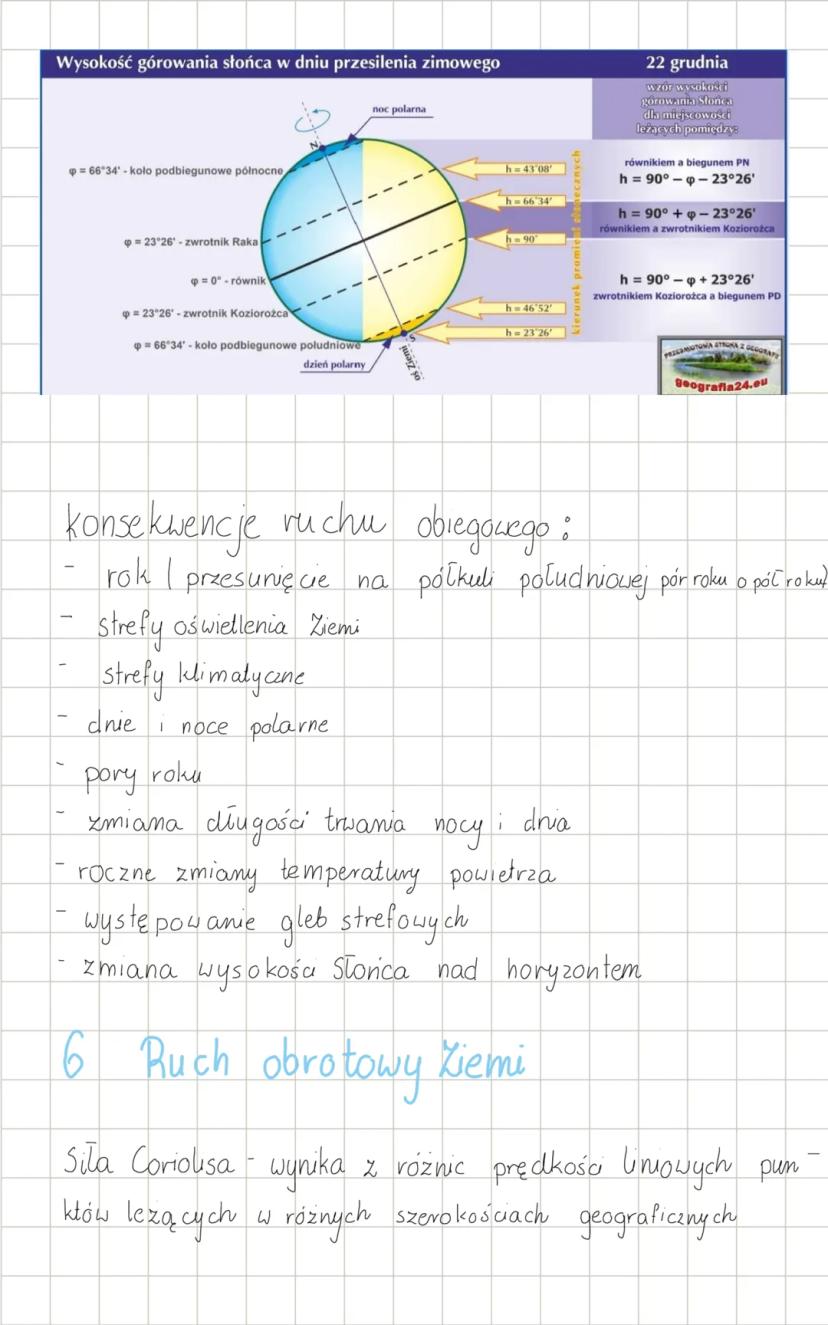 Wysokość górowania słońca w dniu przesilenia zimowego
22 grudnia
wzór wysokości
górowania Słońca
dla miejscowości
leżących pomiędzy:
noc polarna
N
φ = 66°34' - koło podbiegunowe północne
h = 43°08'
równikiem a biegunem PN
h = 90° – φ – 23°26'
h = 66°34'
h = 90° + φ – 23°26'
równikiem a zwrotnikiem Koziorożca
φ = 23°26' - zwrotnik Raka
h = 90°
kierunek promieni słonecznych
φ = 0° - równik
h = 90° – φ + 23°26'
zwrotnikiem Koziorożca a biegunem PD
φ = 23°26' - zwrotnik Koziorożca
h = 46°52'
h = 23°26'
φ = 66°34' - koło podbiegunowe południowe
S
oś Ziemi
dzień polarny
PRZEDMIOTOWA STRONA Z GEOGRAFII
geografia24.eu
konsekwencje ruchu obiegowego :
- rok ( przesunięcie na półkuli południowej pór roku o pół roku)
- strefy oświetlenia Ziemi
- strefy klimatyczne
- dnie i noce polarne
- pory roku
- zmiana długości trwania nocy i dnia
- roczne zmiany temperatury powietrza
- występowanie gleb strefowych
- zmiana wysokości Słońca nad horyzontem
6 Ruch obrotowy Ziemi
Siła Coriolisa - wynika z różnic prędkości liniowych pun-
któw leżących w różnych szerokościach geograficznych